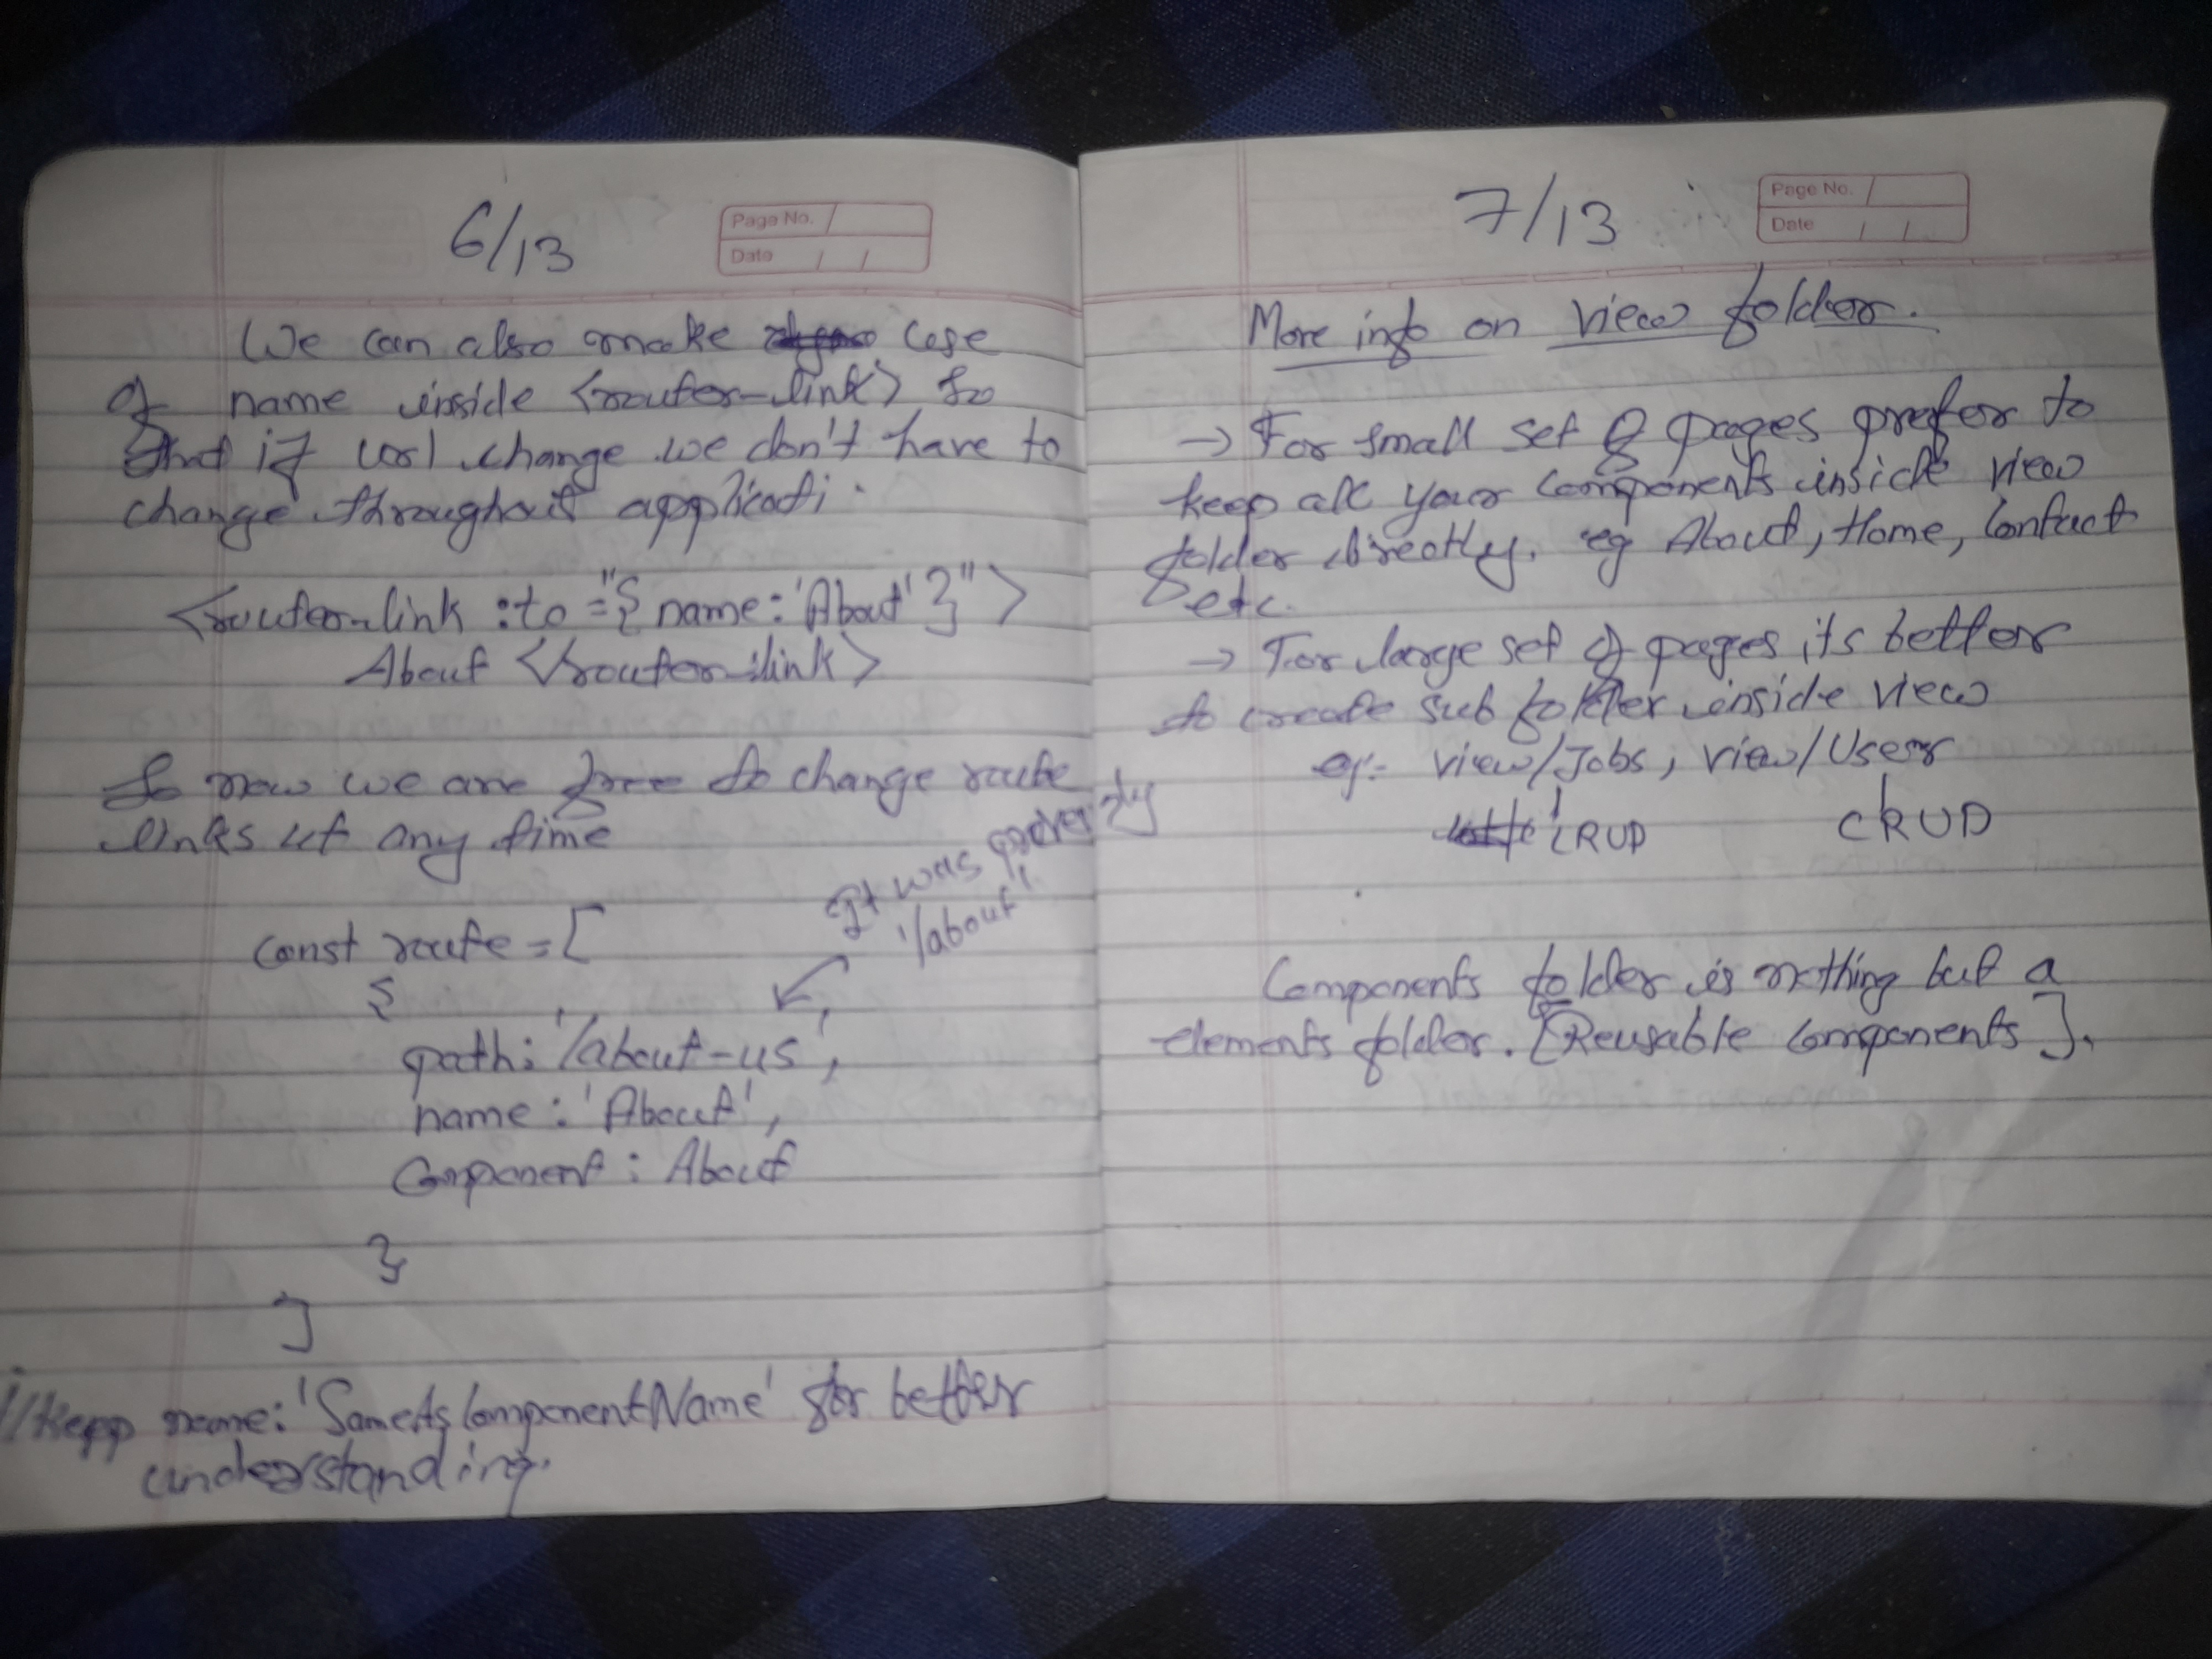 6/13
Page No.
Date / /
We can also make use
of name inside <router-link> So
that if url change we don't have to
change throughout applicati.
<router-link :to="{ name: 'About' }">
About </router-link>
So now we are free to change route
links at any time
It was previously
'/about'
const route = [
{
path: '/about-us',
name: 'About',
Component: About
}
]
//Kepp name: 'SameAsComponentName' for better
understanding.
7/13
Page No.
Date / /
More info on view folder.
→ For small set of pages prefer to
keep all your components inside view
folder directly. eg About, Home, Contact
etc.
→ For large set of pages its better
to create sub folder inside view
eg:- view/Jobs, view/User
CRUD CRUD
Components folder is nothing but a
elements folder. [Reusable Components].